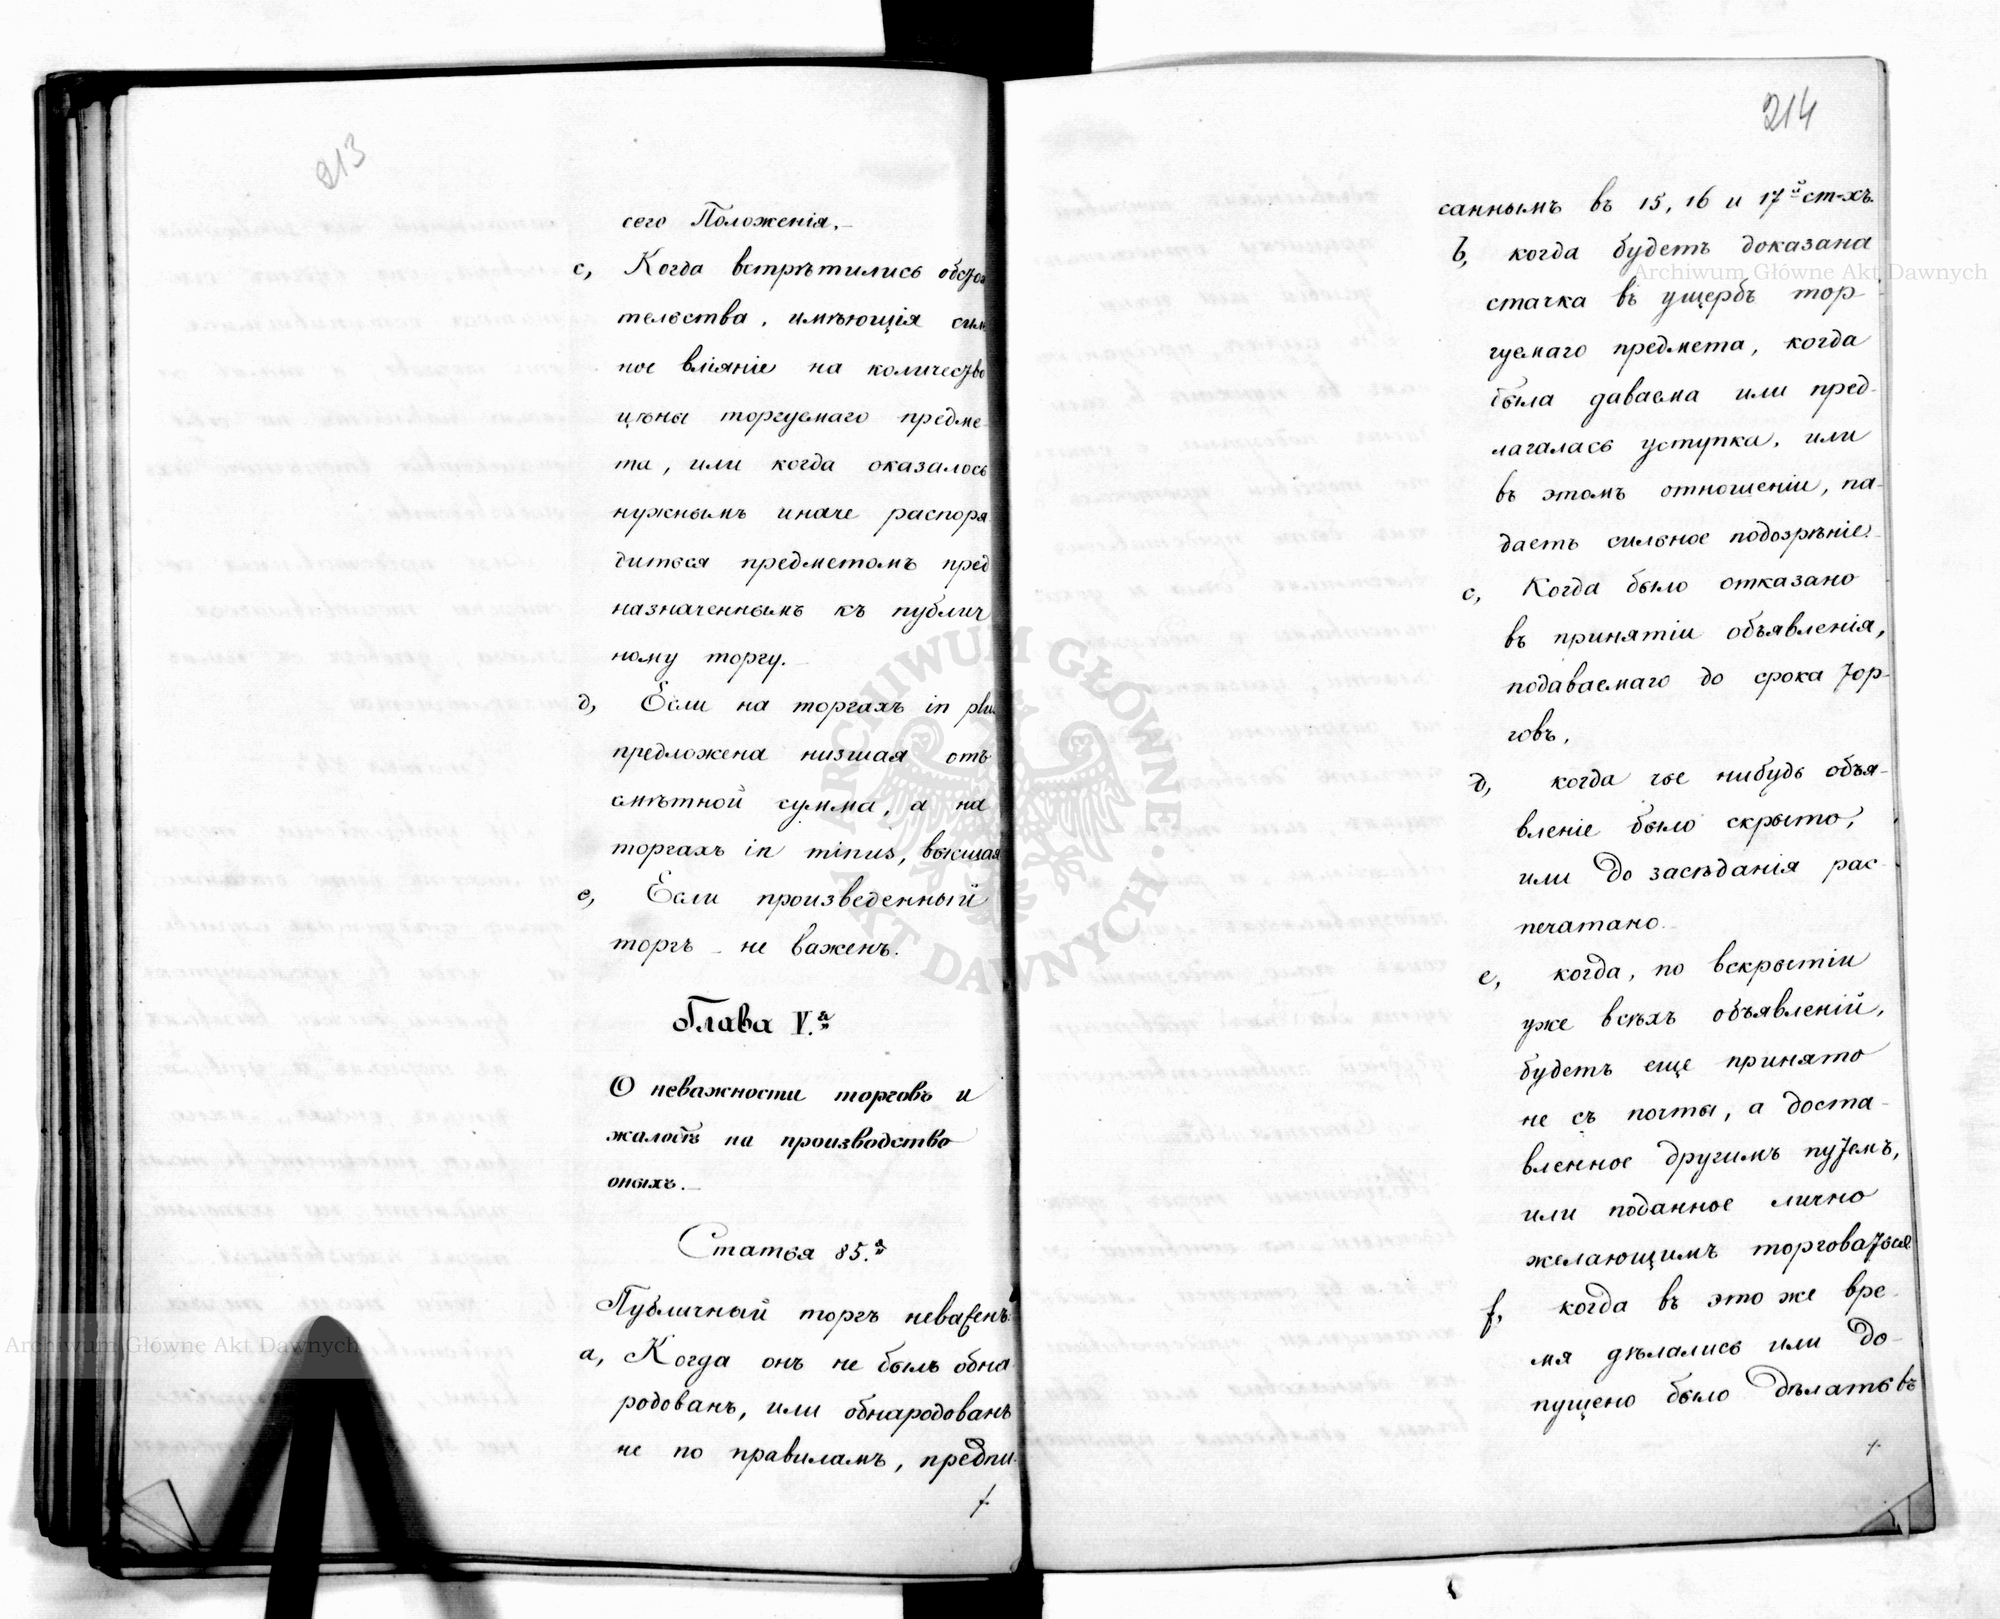 213
сего Положенія.
c, Когда встрѣтились обстоя
тельства, имѣющія силь
ное вліяніе на количество
цѣны торгуемаго предме-
та, или когда оказалось
нужнымъ иначе распоря
диться предметомъ пред
назначеннымъ къ публич
ному торгу.
d, Если на торгахъ in plus
предложена низшая отъ
смѣтной сумма, а на
торгахъ in minus, высшая
e, Если произведенный
торгъ - не важенъ.
Глава V.ая
О неважности торговъ и
жалобъ на производство
оныхъ.
Статья 85.ая
Публичный торгъ неваженъ:
a, Когда онъ не былъ обна
родованъ, или обнародованъ
не по правиламъ, предпи-
214
саннымъ въ 15, 16 и 17й ст-хъ.
b, когда будетъ доказана
стачка въ ущербъ тор
гуемаго предмета, когда
была даваема или пред-
лагалась уступка, или
въ этомъ отношеніи, па-
даетъ сильное подозрѣніе.
c, Когда было отказано
въ принятіи объявленія,
подаваемаго до срока тор-
говъ,
d, когда чье нибудь объя-
вленіе было скрыто,
или до засѣданія рас-
печатано.
e, когда, по вскрытіи
уже всѣхъ объявленій,
будетъ еще принято
не съ почты, а доста-
вленное другимъ путемъ,
или поданное лично
желающимъ торговаться.
f, когда въ это же вре-
мя дѣлались или до-
пущено было дѣлать въ
Archiwum Główne Akt Dawnych
Archiwum Główne Akt Dawnych
ARCHIWUM GŁÓWNE AKT DAWNYCH